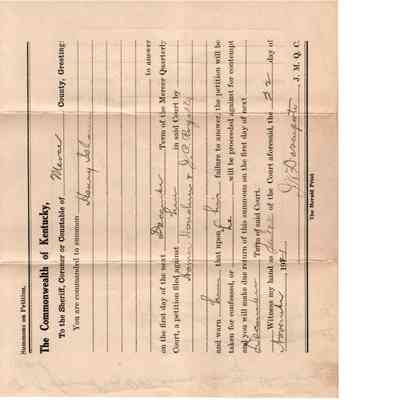 Summons on Petition.
The Commonwealth of Kentucky,
To the Sheriff, Coroner or Constable of Mercer County, Greeting:
You are commanded to summon Henry
to answer
on the first day of the next December Term of the Mercer Quarterly
Court, a petition filed against him in said Court by
and warn him that upon his failure to answer, the petition will be
taken for confessed, or he will be proceeded against for contempt
and you will make due return of this summons on the first day of next
December Term of said Court.
Witness my hand as Judge of the Court aforesaid, the 22 day of
November 191
J. M. Q. C.
The Herald Print